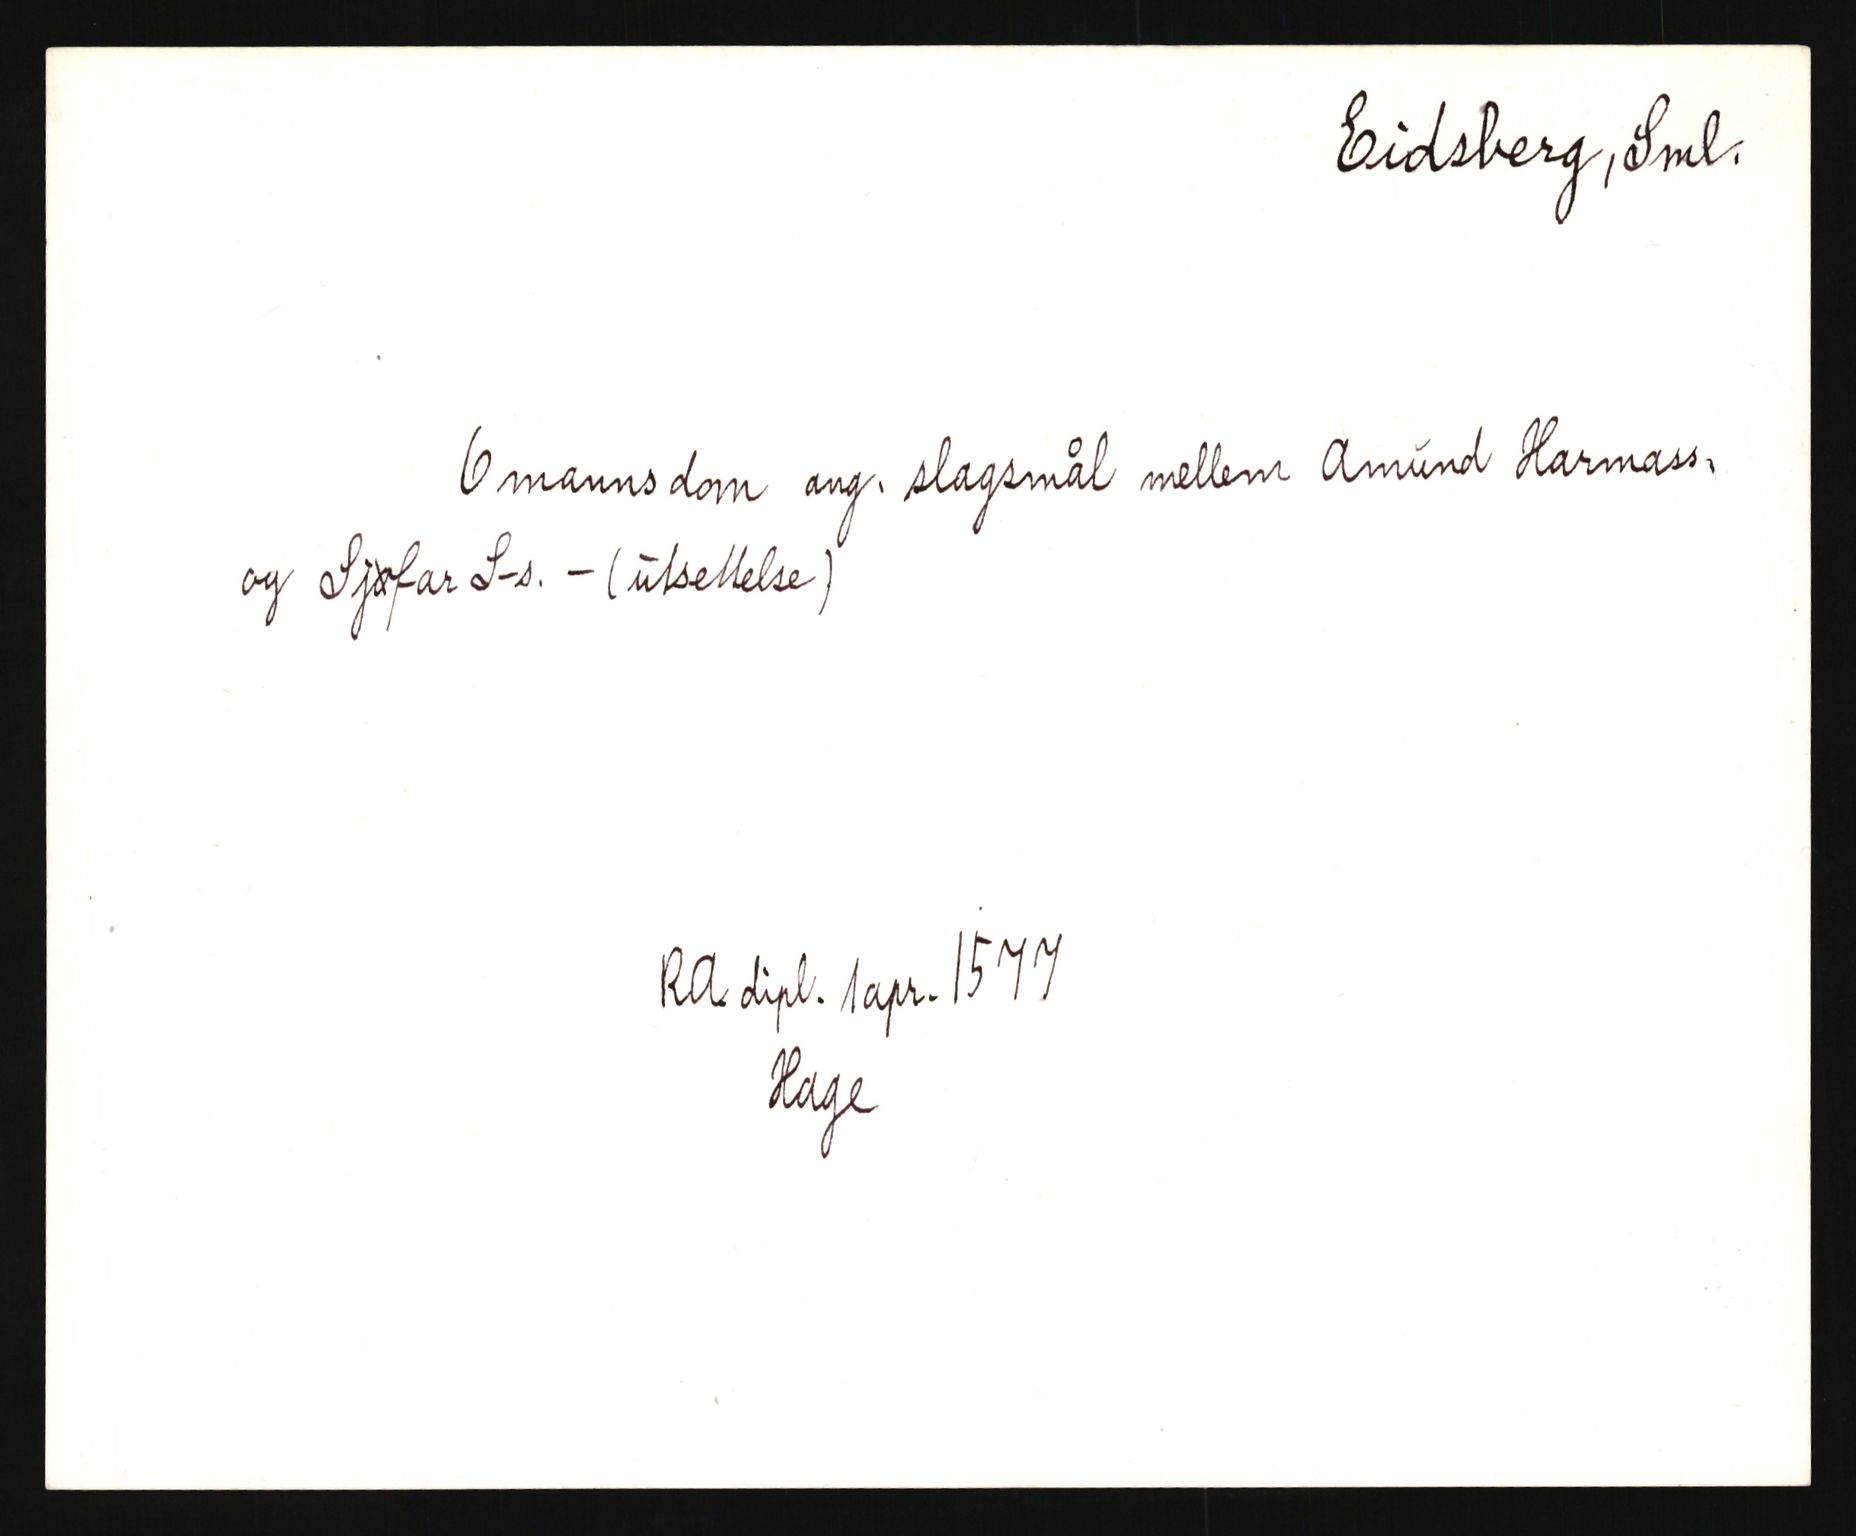 Eidsberg, Sml.
6 mannsdom ang. slagsmål mellem Amund Harmass.
og Sjøfar S-s. - (utsettelse)
RA. dipl. 1 apr. 1577
Hage